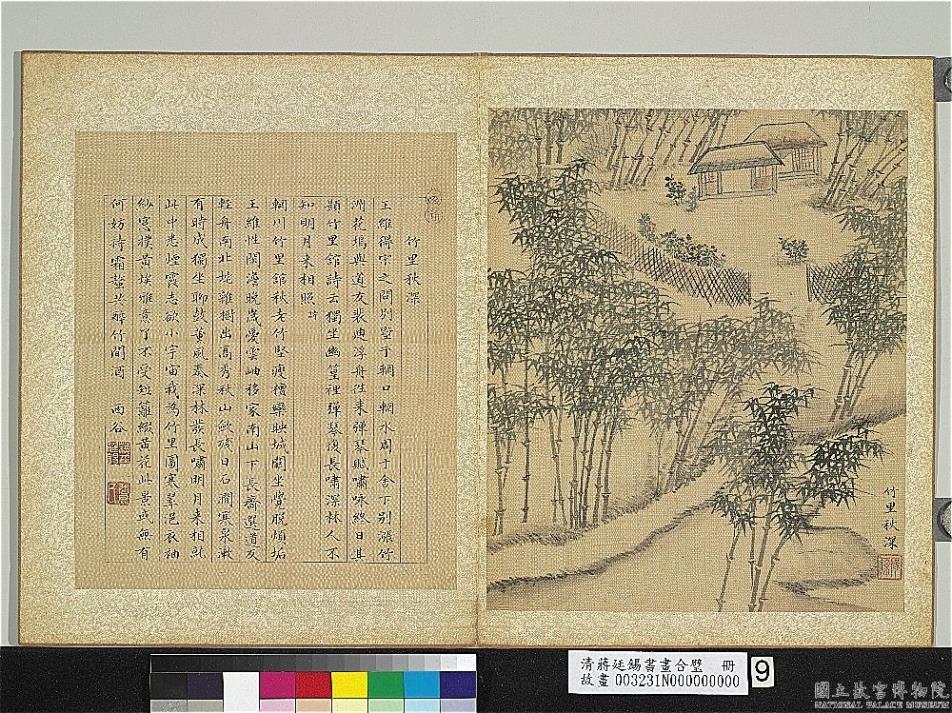 竹里秋深
王維得宋之問別墅于輞口輞水周于舍下別漲竹
洲花塢與道友裴迪浮舟往来彈琴賦嘯咏終日其
題竹里館詩云獨坐幽篁裡弹琴復長嘯深林人不
知明月来相照
詩
輞川竹里館秋老竹堅瘦檀欒映城闕坐覺脱煩垢
王維性閒澹晚歲愛雲岫移家南山下長齋選道友
輕舟南北垞雜樹出清秀秋山斂殘日石澗寒泉漱
有時成獨坐聊鼓薰風奏深林發長嘯明月来相就
此中悉煙霞志欲小宇宙我為竹里圖寒翠浥衣袖
紗窓撲黄埃雅意了不受短籬綴黄花此景或無有
何妨詩霜螯共醉竹間酒 西谷
竹里秋深
清蔣廷錫書畫合璧 冊
故畫003231N000000000
9
國立故宮博物院
NATIONAL PALACE MUSEUM